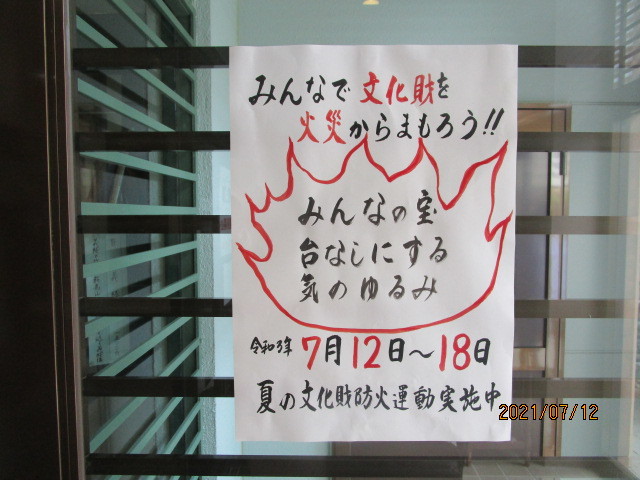 みんなで文化財を
火災からまもろう!!
みんなの宝
台なしにする
気のゆるみ
令和3年 7月12日〜18日
夏の文化財防火運動実施中
2021/07/12